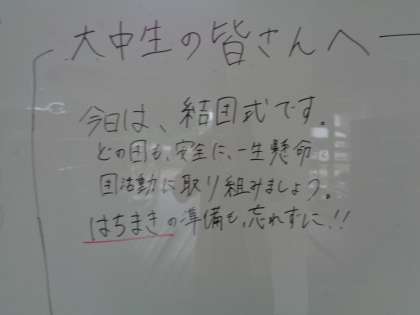 大中生の皆さんへ
今日は、結団式です。
どの団も、安全に、一生懸命
団活動に取り組みましょう。
はちまきの準備も、忘れずに!!